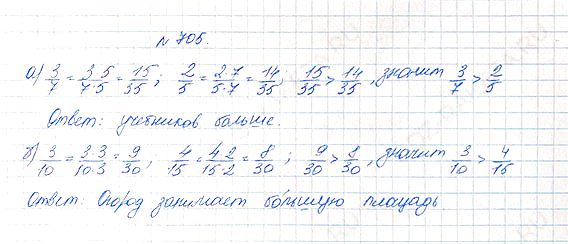 № 705.
а) 3/7 = 3·5/7·5 = 15/35; 2/5 = 2·7/5·7 = 14/35, 15/35 > 14/35, значит 3/7 > 2/5
Ответ: учебников больше.
б) 3/10 = 3·3/10·3 = 9/30; 4/15 = 4·2/15·2 = 8/30; 9/30 > 8/30, значит 3/10 > 4/15
Ответ: Огород занимает бо́льшую площадь